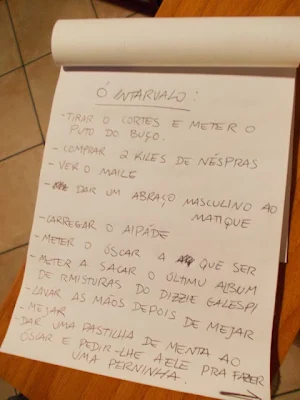 Ó INTARVALO:
-TIRAR O CORTES E METER O
PUTO DO BUÇO.
-COMPRAR 2 KILES DE NÉSPRAS
-VER O MAILE
- DAR UM ABRAÇO MASCULINO AO
MATIQUE
-CARREGAR O AIPÁDE
-METER O ÓSCAR A QUE SER
-METER A SACAR O ÚLTIMU ALBUM
DE RMISTURAS DO DIZZIE GALESPI
-LAVAR AS MÃOS DEPOIS DE MEJAR
-MEJAR
-DAR UMA PASTILHA DE MENTA AO
ÓSCAR E PEDIR-LHE A ELE PRA FAZER
UMA PERNINHA.